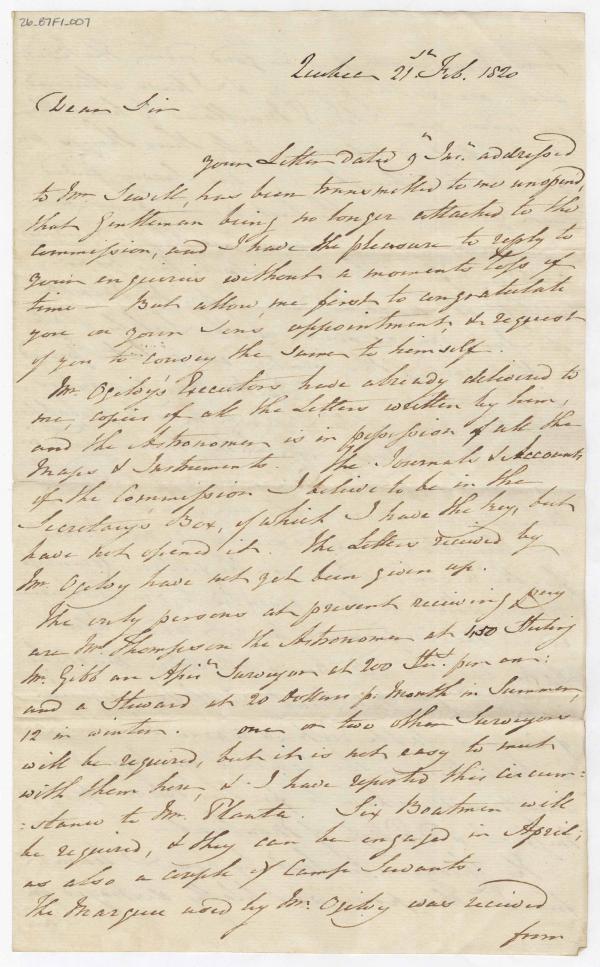 26_B7F1_007
Quebec 21st Feb. 1820
Dear Sir
your Letter dated 9th Inst. addressed
to Mr Sewell, has been transmitted to me unopend,
that Gentleman being no longer attached to the
commission, and I have the pleasure to reply to
your enquiries without a moments loss of
time — But allow me first to congratulate
you on your Son's appointment, & request
of you to convey the same to himself.
Mr. Ogilvy's Executors have already delivered to
me, copies of all the Letters written by him,
and the Astronomer is in possession of all the
Maps & Instruments. The Journals & Accounts
of the Commission I believe to be in the
Secretary's Box, of which I have the key, but
have not opened it. The Letters received by
Mr. Ogilvy have not yet been given up.
The only persons at present receiving pay
are Mr. Thompson the Astronomer at 450 Sterling
Mr. Gibb an Assist Surveyor at 200 Str. per an:
and a Steward at 20 Dollars pr Month in Summer,
12 in winter. one or two other Surveyors
will be required, but it is not easy to meet
with them here, & I have reported this circum=
=stance to Mr. Planta. Six Boatmen will
be required, & they can be engaged in April;
as also a couple of Camp Servants.
The Marquee used by Mr. Ogilvy was received
from